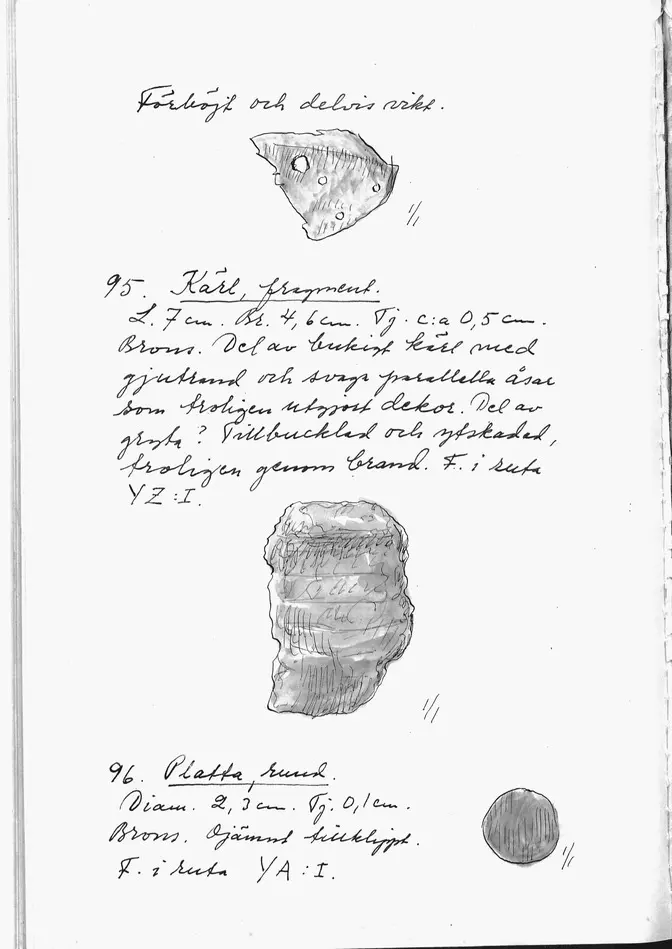 Förhöjt och delvis vikt.
1/1
95. Kärl, fragment.
L. 7 cm. Br. 4,6 cm. Tj. c:a 0,5 cm.
Brons. Del av bukigt kärl med
gjutrand och svaga parallella åsar
som troligen utgjort dekor. Del av
gryta? Tillbucklad och ytskadad,
troligen genom brand. F. i ruta
YZ:I.
1/1
96. Platta, rund.
Diam. 2,3 cm. Tj. 0,1 cm.
Brons. Ojämnt tillklippt.
1/1
F. i ruta YA:I.